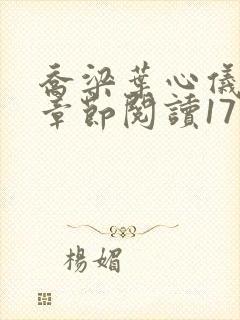 喬梁葉心儀
章節閱讀17
楊媚